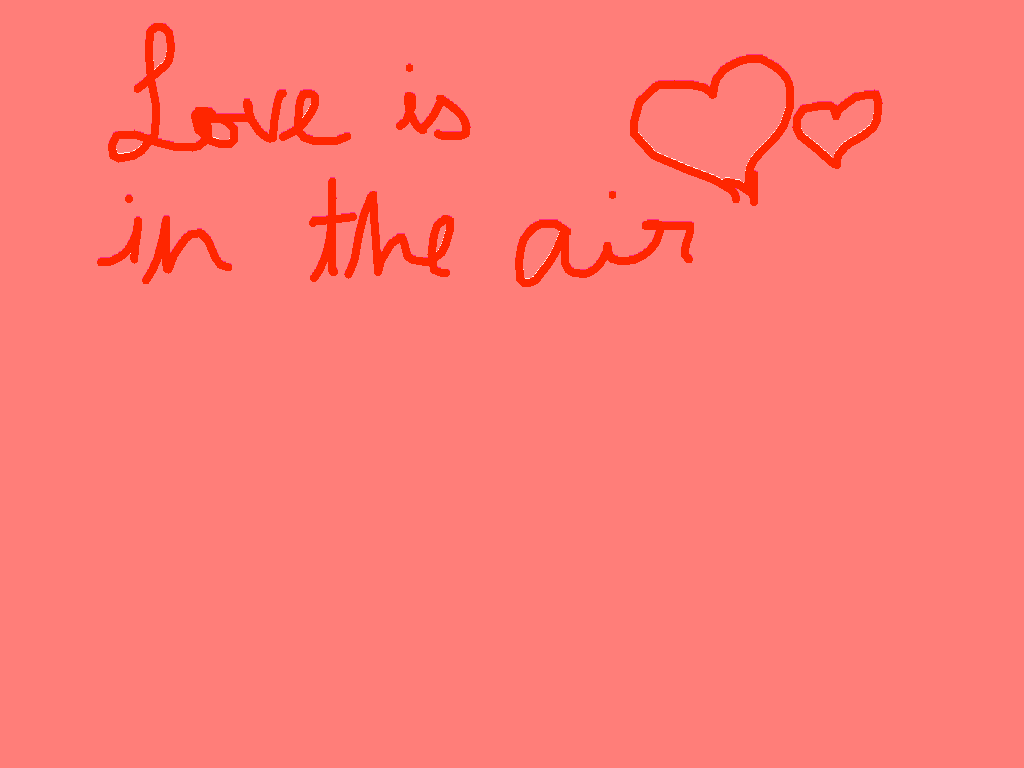 Love is
in the air